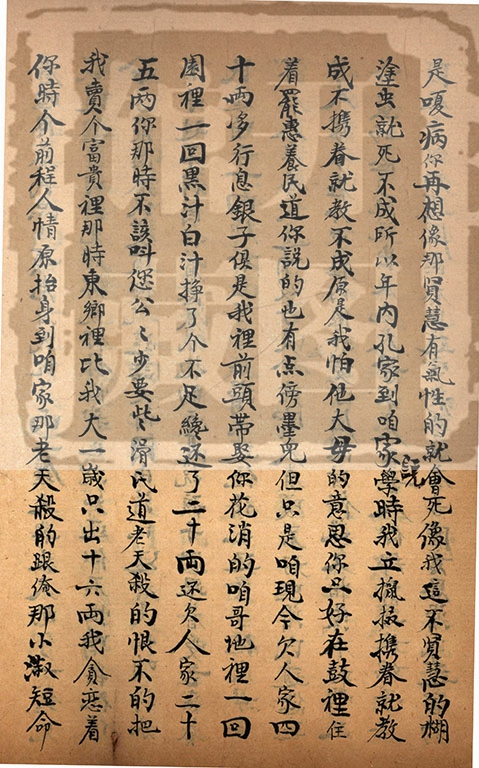 是嗄病你再想像那賢慧有氣性的就會死像我這不賢慧的糊
塗虫就死不成所以年內孔家到咱家說學時我立攛掇携眷就教
成不携眷就教不成原是我怕他大母的意思你只好在鼓裡住
着罷惠養民道你說的也有点傍墨兒但只是咱現今欠人家四
十兩多行息銀子俱是我裡前頭帶娶你花消的咱哥地裡一回
園裡一回黑汁白汁挣了个不足纔还了二十兩还欠人家二十
五兩你那時不該呌您公〻少要些〻滑氏道老天殺的恨不的把
我賣个富貴裡那時東鄉裡比我大一歲只出十六兩我貪恋着
你時个前程人情原抬身到咱家那老天殺的跟俺那小淑短命